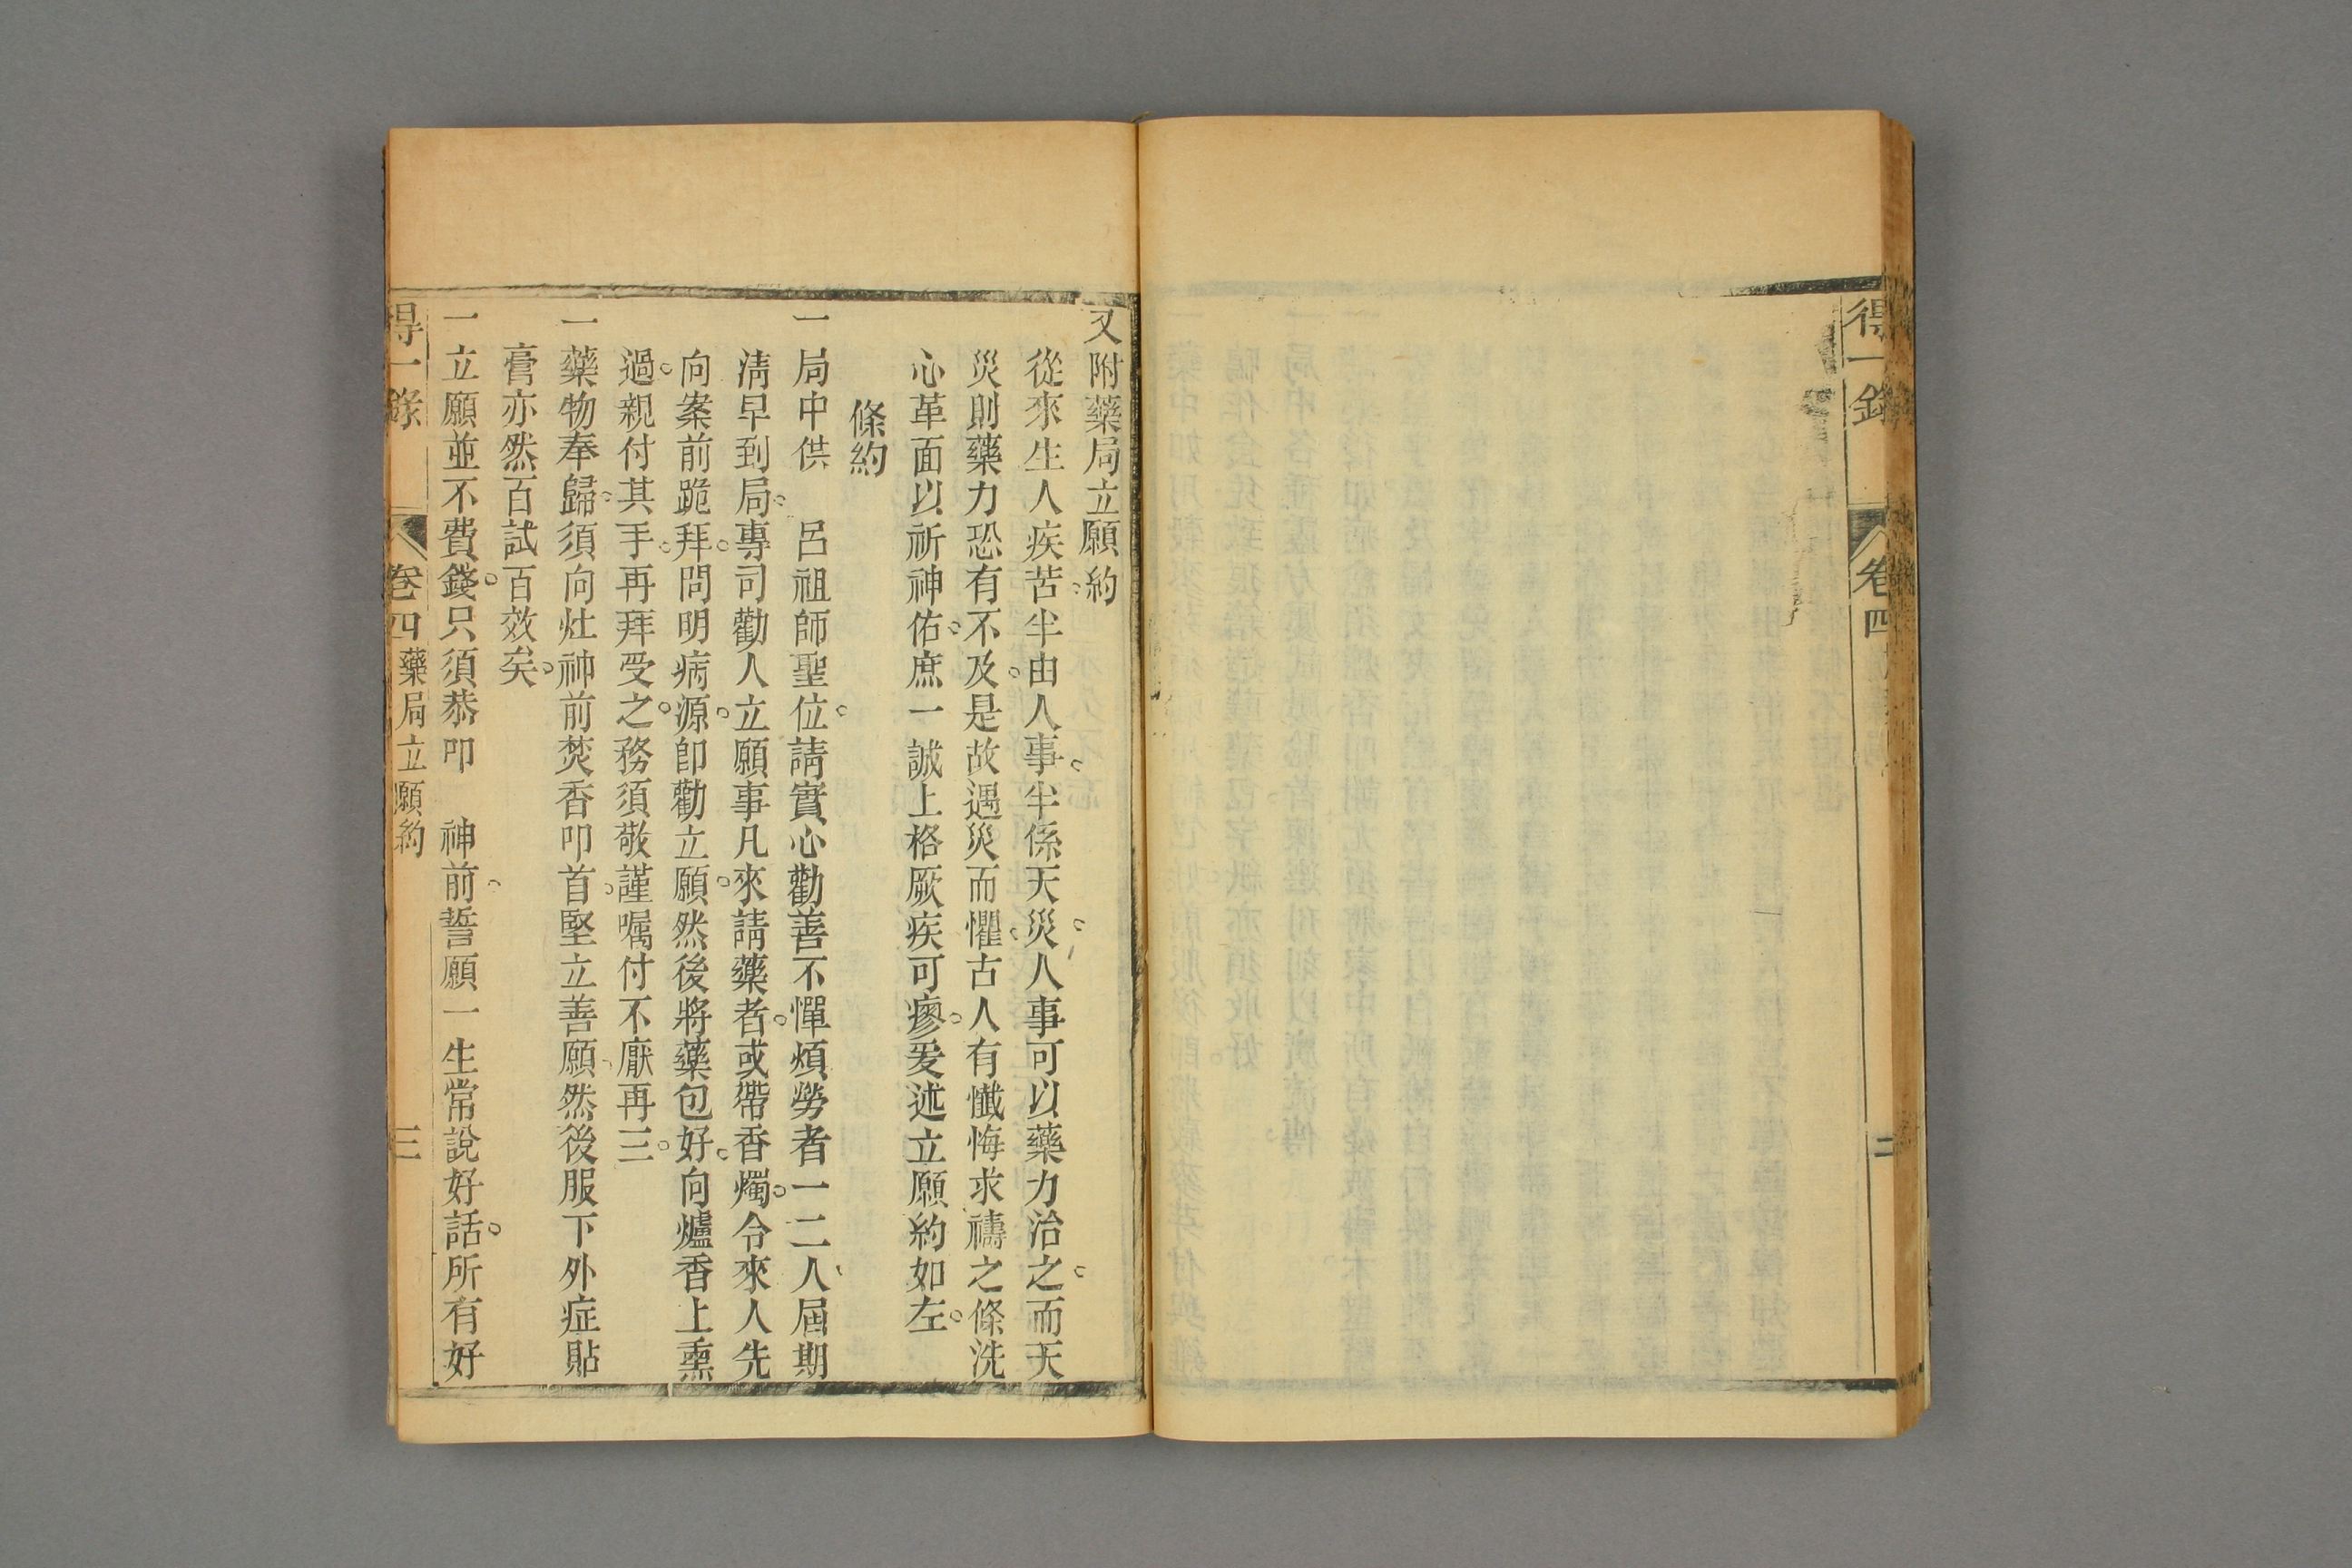 得一錄
卷四
二
又附藥局立願約
從來生人疾苦。半由人事。半係天災。人事可以藥力治之。而天
災則藥力恐有不及。是故遇災而懼。古人有懺悔求禱之條洗
心革面以祈神佑。庶一誠上格厥疾可瘳。爰述立願約如左。
條約
一局中供　呂祖師聖位。請實心勸善不憚煩勞者一二人、屆期
清早到局。專司勸人立願事凡來請藥者。或帶香燭。令來人先
向案前跪拜。問明病源。卽勸立願。然後將藥包好。向爐香上熏
過。親付其手。再拜受之。務須敬謹囑付不厭再三。
一藥物奉歸。須向灶神前焚香叩首。堅立善願。然後服下外症貼
膏亦然百試百效矣。
一立願並不費錢。只須恭叩　神前。誓願一生常說好話。所有好
得一錄
卷四
藥局立願約
三